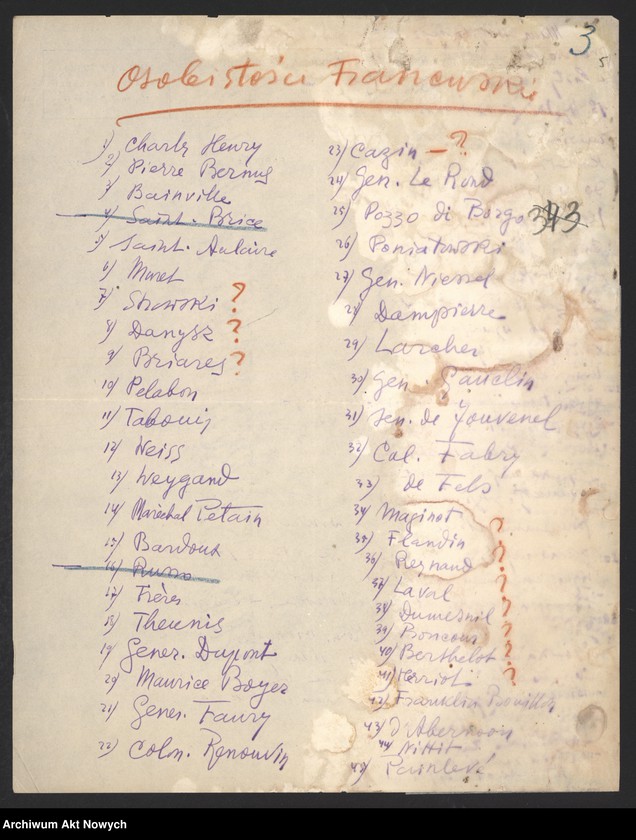 3
Osobistości Francuskie
1) Charles Henry
2) Pierre Bernus
3) Bainville
4) Saint-Brice
5) Saint-Aulaire
6) Muret
7) Strowski ?
8) Danysz ?
9) Briares ?
10) Pelabon
11) Tabouis
12) Weiss
13) Weygand
14) Maréchal Petain
15) Bardoux
16) Russo
17) Frères
18) Theunis
19) Gener. Dupont
20) Maurice Boyer
21) Gener. Faury
22) Colon. Renouvin
23) Cazin – ?
24) Gen. Le Rond
25) Pozzo di Borgo 343
26) Poniatowski
27) Gen. Niessel
28) Dampierre
29) Larcher
30) Gen. Gauclin
31) Sen. de Jouvenel
32) Col. Fabry
33) de Fels
34) Maginot ?
35) Flandin ?
36) Reynaud ?
37) Laval ?
38) Dumesnil ?
39) Boncour ?
40) Berthelot ?
41) Herriot ?
42) Franklin Bouillon
43) d'Abernoon
44) Nittit
45) Painlevé
Archiwum Akt Nowych